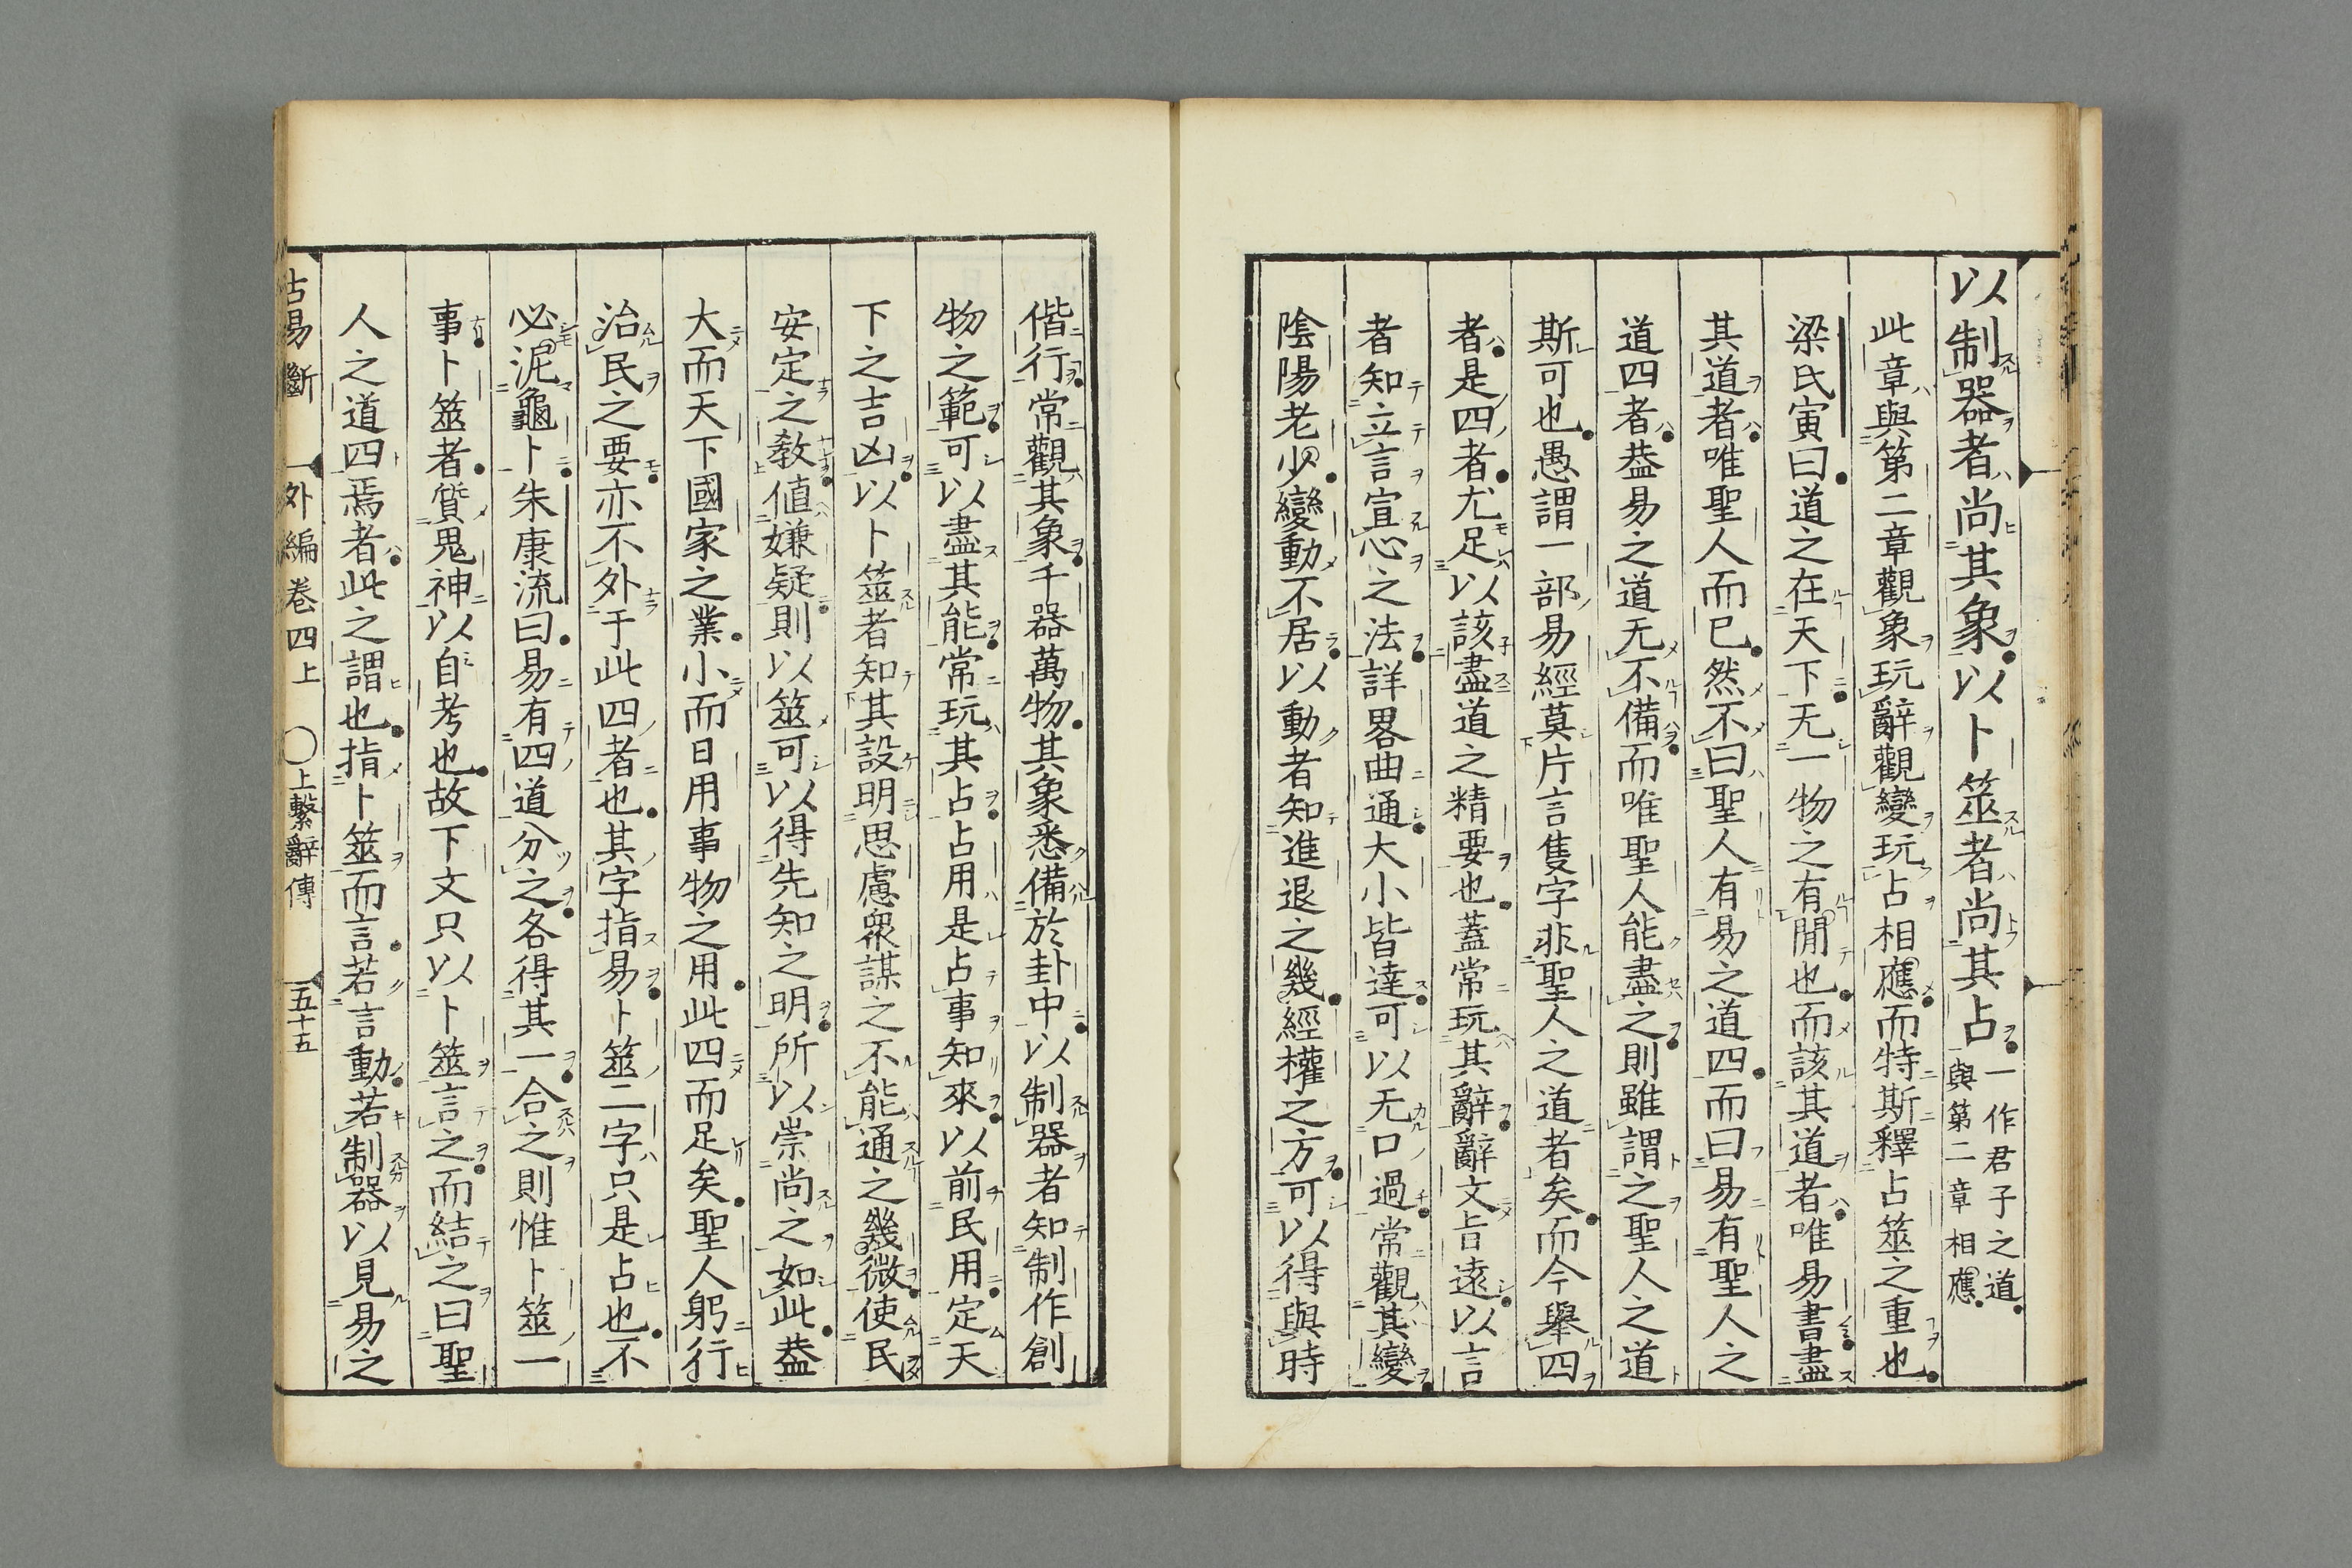 以制器者尚其象以卜筮者尚其占一作君子之道與第二章相應
此章與第二章觀象玩辭觀變玩占相應而特斯釋占筮之重也
梁氏寅曰道之在天下无一物之有閒也而該其道者唯易書盡
其道者唯聖人而已然不曰聖人有易之道四而曰易有聖人之
道四者葢易之道无不備而唯聖人能盡之則雖謂之聖人之道
斯可也愚謂一部易經莫片言隻字非聖人之道者矣而今舉四
者是四者尤足以該盡道之精要也蓋常玩其辭辭文旨遠以言
者知立言宣心之法詳畧曲通大小皆達可以无口過常觀其變
陰陽老少變動不居以動者知進退之幾經權之方可以得與時
偕行常觀其象千器萬物其象悉備於卦中以制器者知制作創
物之範可以盡其能常玩其占占用是占事知來以前民用定天
下之吉凶以卜筮者知其設明思慮衆謀之不能通之幾微使民
安定之教値嫌疑則以筮可以得先知之明所以崇尚之如此葢
大而天下國家之業小而日用事物之用此四而足矣聖人躬行
治民之要亦不外于此四者也其字指易卜筮二字只是占也不
必泥龜卜朱康流曰易有四道分之各得其一合之則惟卜筮一
事卜筮者質鬼神以自考也故下文只以卜筮言之而結之曰聖
人之道四焉者此之謂也指卜筮而言若言動若制器以見易之
古易斷 外編卷四上 ○上繫辭傳 五十五